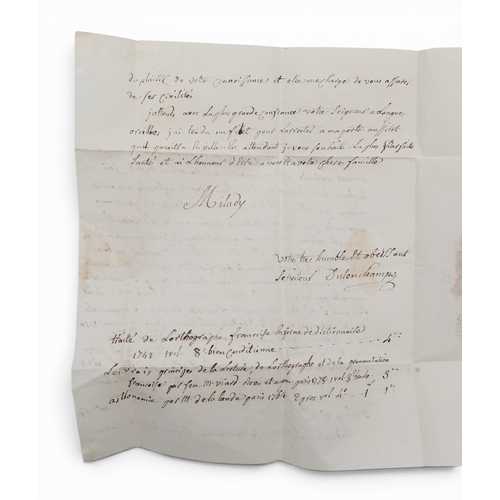 du plaisir de votre connoissance et elle me charge de vous assurer
de ses civilités
j'attends avec La plus grande confiance votre Seigneur a Longue
oreilles, j'ai tendu un filet pour Larreter a ma porte aussitot
quil paroitra En ville. En attendant je vous souhaite La plus parfaite
Santé et ai L'honneur d'être a vous et a votre chere famille
Milady
votre tres humble Et obeissant
Serviteur Dulonchamps
traité de Lorthographe francoise En forme de dictionnaire
1742 1 vol 8° bien Conditionné 4
Les vrais principes de la Lecture, de Lorthographe et de la prononciation
francoise par feu M. viard paris 1778 1 vol 8° 3
astronomie par M. de la Lande paris 1764 2 gros vol 4° 1 1